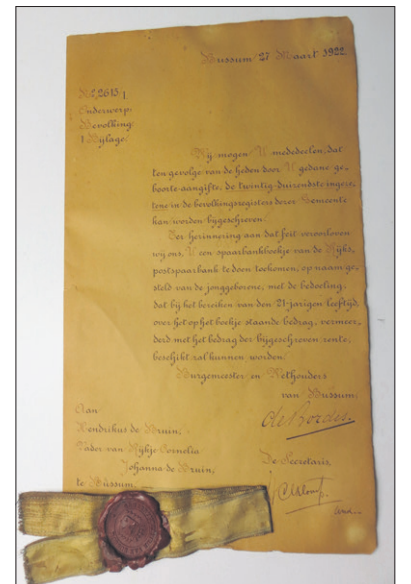 Bussum, 27 Maart 1922
No. 2615 1.
Onderwerp:
Bevolking.
1 Bijlage.
Wij mogen U mededeelen, dat
ten gevolge van de heden door U gedane ge-
boorte-aangifte, de twintig-duizendste ingeze-
tene in de bevolkingsregisters dezer Gemeente
kan worden bygeschreven.
Ter herinnering aan dat feit veroorloven
wij ons, U een spaarbankboekje van de Rijks-
postspaarbank te doen toekomen, op naam ge-
steld van de jonggeborene, met de bedoeling,
dat bij het bereiken van den 21-jarigen leeftijd,
over het op het boekje staande bedrag, vermeer-
derd met het bedrag der bijgeschreven rente,
beschikt zal kunnen worden.
Burgemeester en Wethouders
van Bussum,
de Bordes
Aan
Hendrikus de Bruin,
Vader van Rijkje Cornelia
Johanna de Bruin,
te Bussum.
De Secretaris,